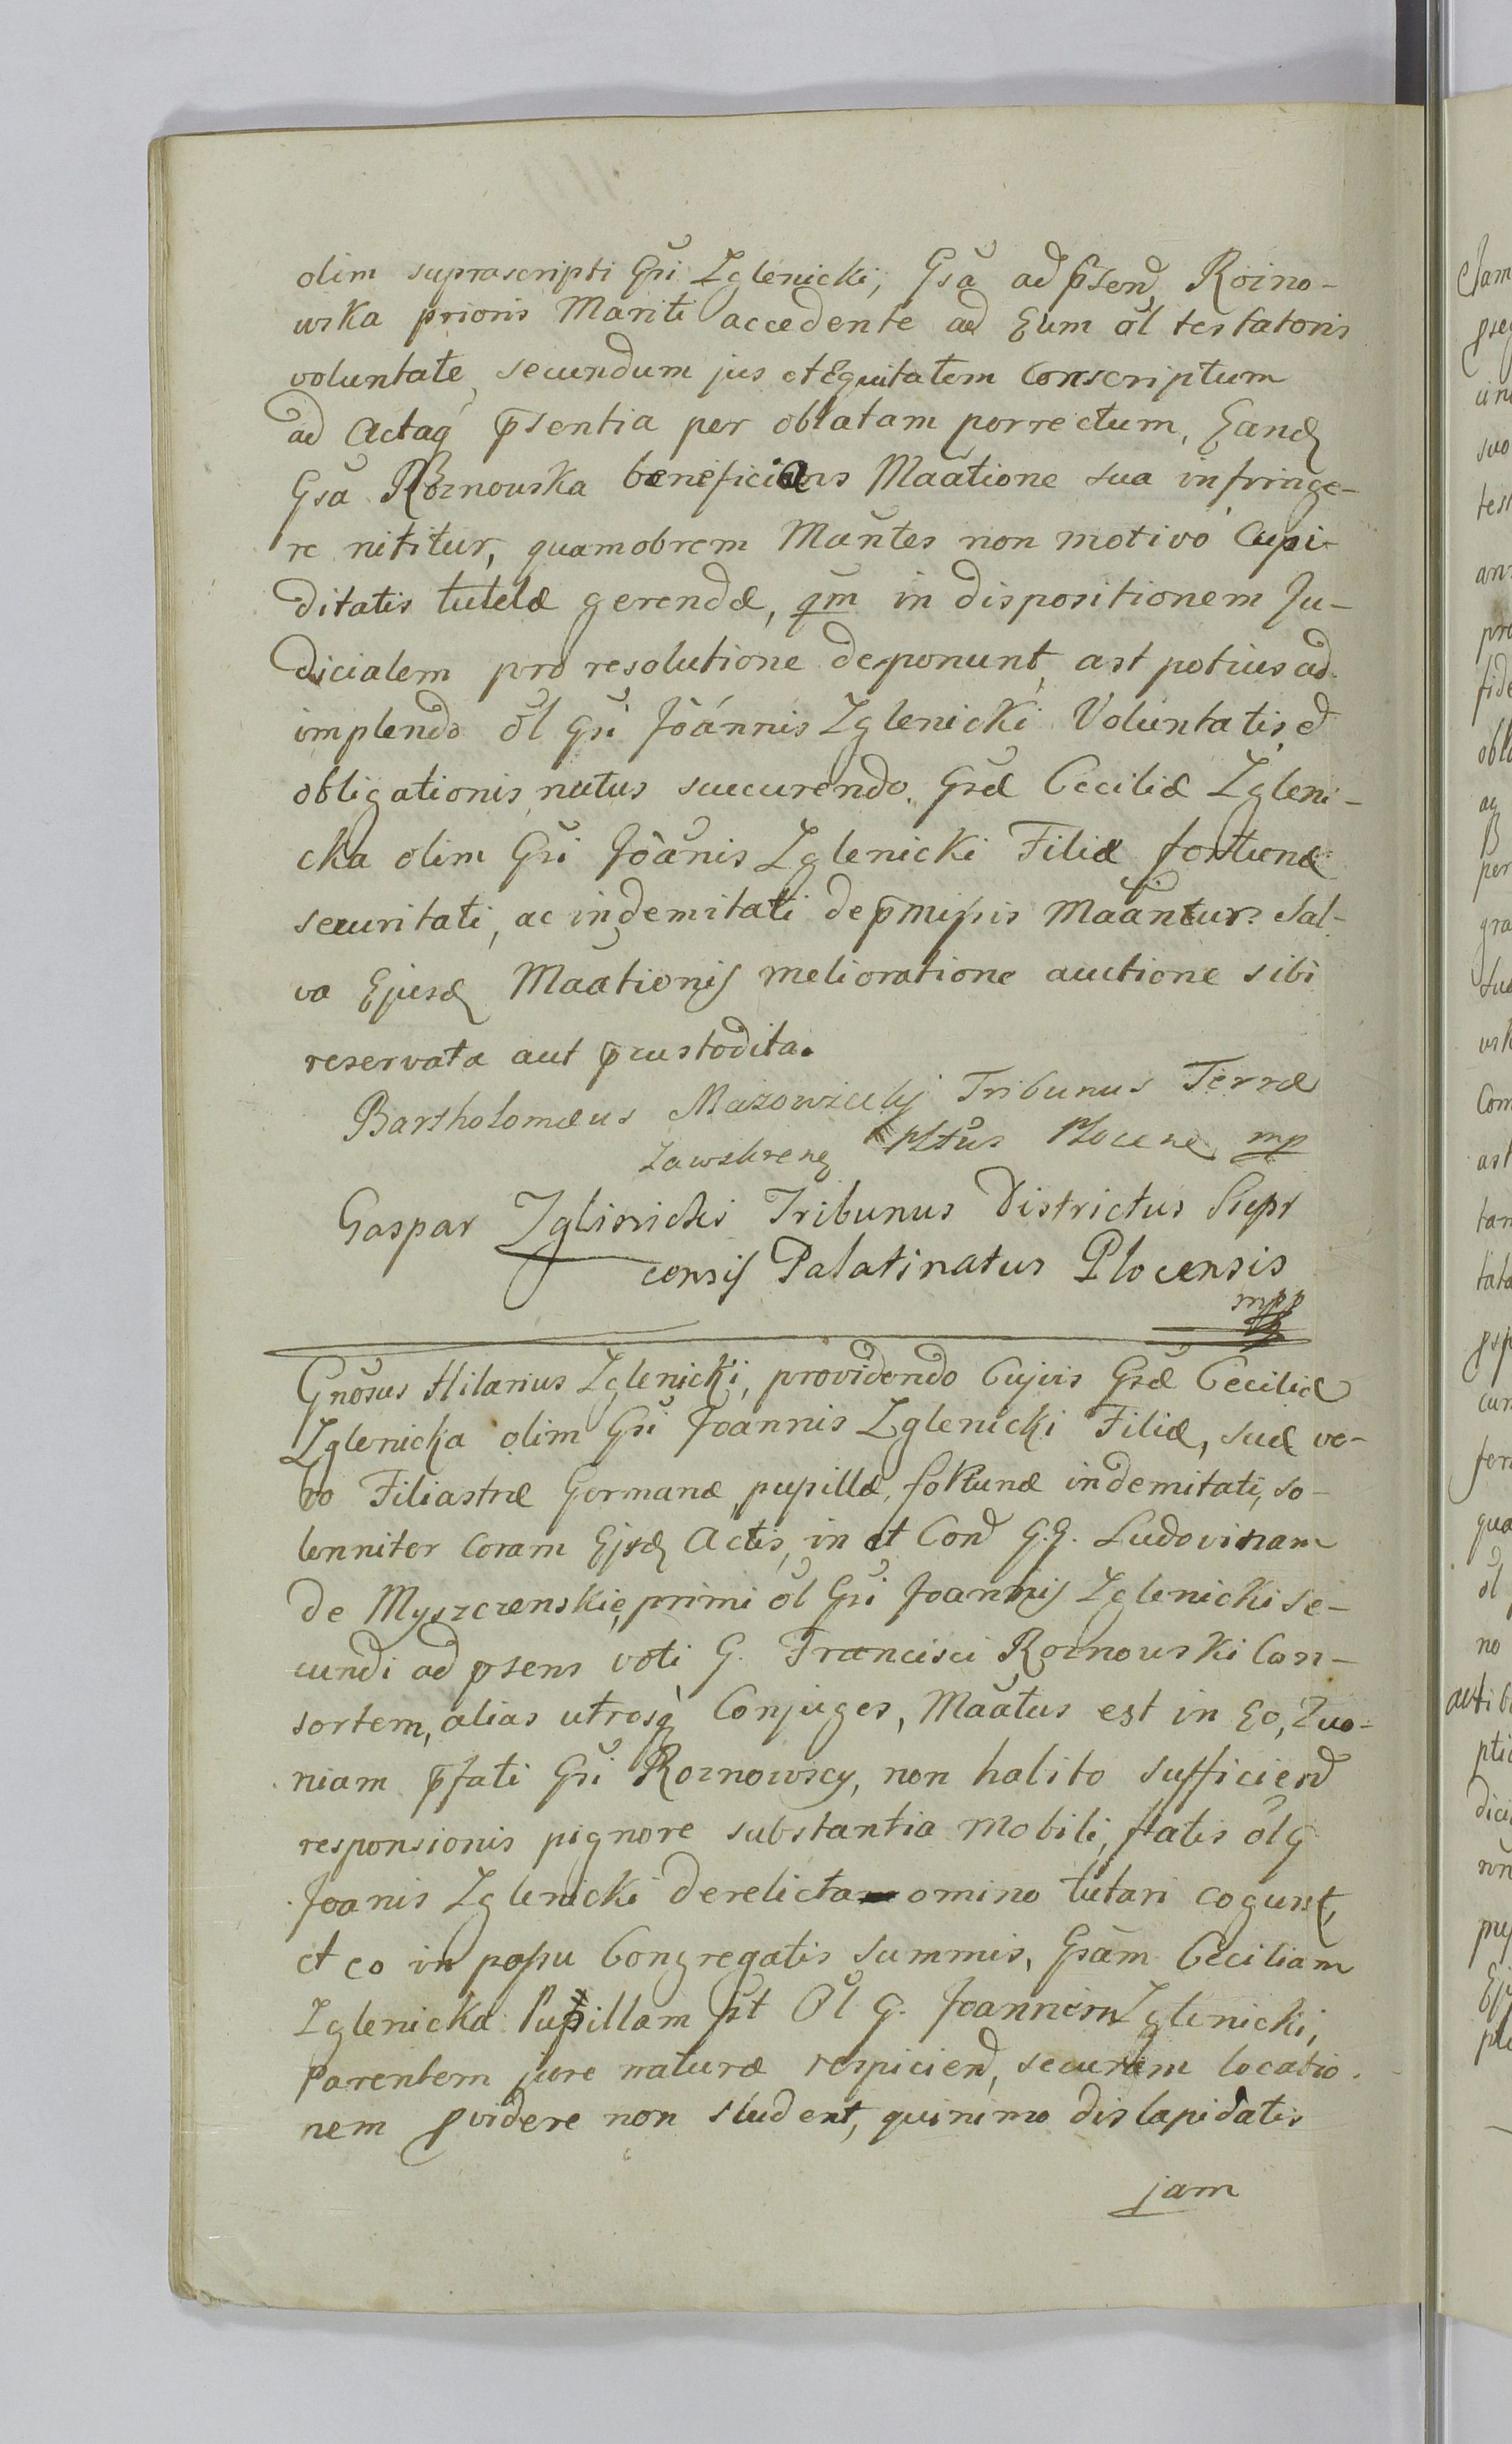 olim suprascripti Gsi Zglenicki, Gsa ad p̄send Rozno-
wska prioris Mariti accedente ad Eum ol testatoris
voluntate, secundum jus et Equitatem Conscriptum
ad Actaq p̄sentia per oblatam porrectum, Eand
Gsa Roznouska beneficiars Maatione sua infringe-
re nititur, quamobrem Mantes non motivo Cupi-
ditatis tutelæ gerendæ, qm in dispositionem Ju-
dicialem pro resolutione deponunt, ast potius ad
implendo ol Gsi Joánnis Zglenicki Voluntatis, et
obligationis nutus succurendo. Gsæ Ceciliæ Zgleni-
cka olim Gsi Joanis Zglenicki Filiæ fortunæ
securitati, ac indemitati de p̄missis Maantur. Sal-
va Ejusd Maationis melioratione auctione sibi
reservata aut p̄custodita.
Bartholomæus Mazowiecky Tribunus Terræ
Zawskrens Pltus Plocens mp
Gaspar Zglinicki Tribunus Districtus Siepr
censis Palatinatus Plocensis
mpp
Gnosus Hilarius Zglenicki, providendo Cujvis Gsæ Ceciliæ
Zglenicka olim Gsi Joannis Zglenicki Filiæ, suæ ve-
ro Filiastræ Germanæ pupillæ, fortunæ indemitati, so-
lenniter Coram Ejsd Actis, in et Con̄d G.G. Ludovinam
de Myszczenskie, primi ol Gsi Joannis Zglenicki Se-
cundi ad psens voti G. Francisci Roznouski Con-
sortem, alias utrosq Conjuges, Maatus est in Eo, Quo-
niam p̄fati Gsi Roznowscy, non habito sufficiend
responsionis pignore substantia Mobili, fatis ol G
Joanis Zglenicki derelicta omino tutari cogunt,
et eo in possu Congregatis summis, Gsam Ceciliam
Zglenicka Pupillam ut Ol G. Joannem Zglenicki,
Parentem jure naturæ respiciend, securam locatio-
nem pvidere non student, quinimo dislapidatis
jam